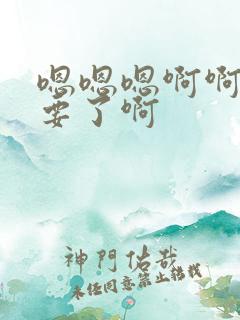 嗯嗯嗯啊啊
要了啊
神門佑哉
未经同意禁止转载